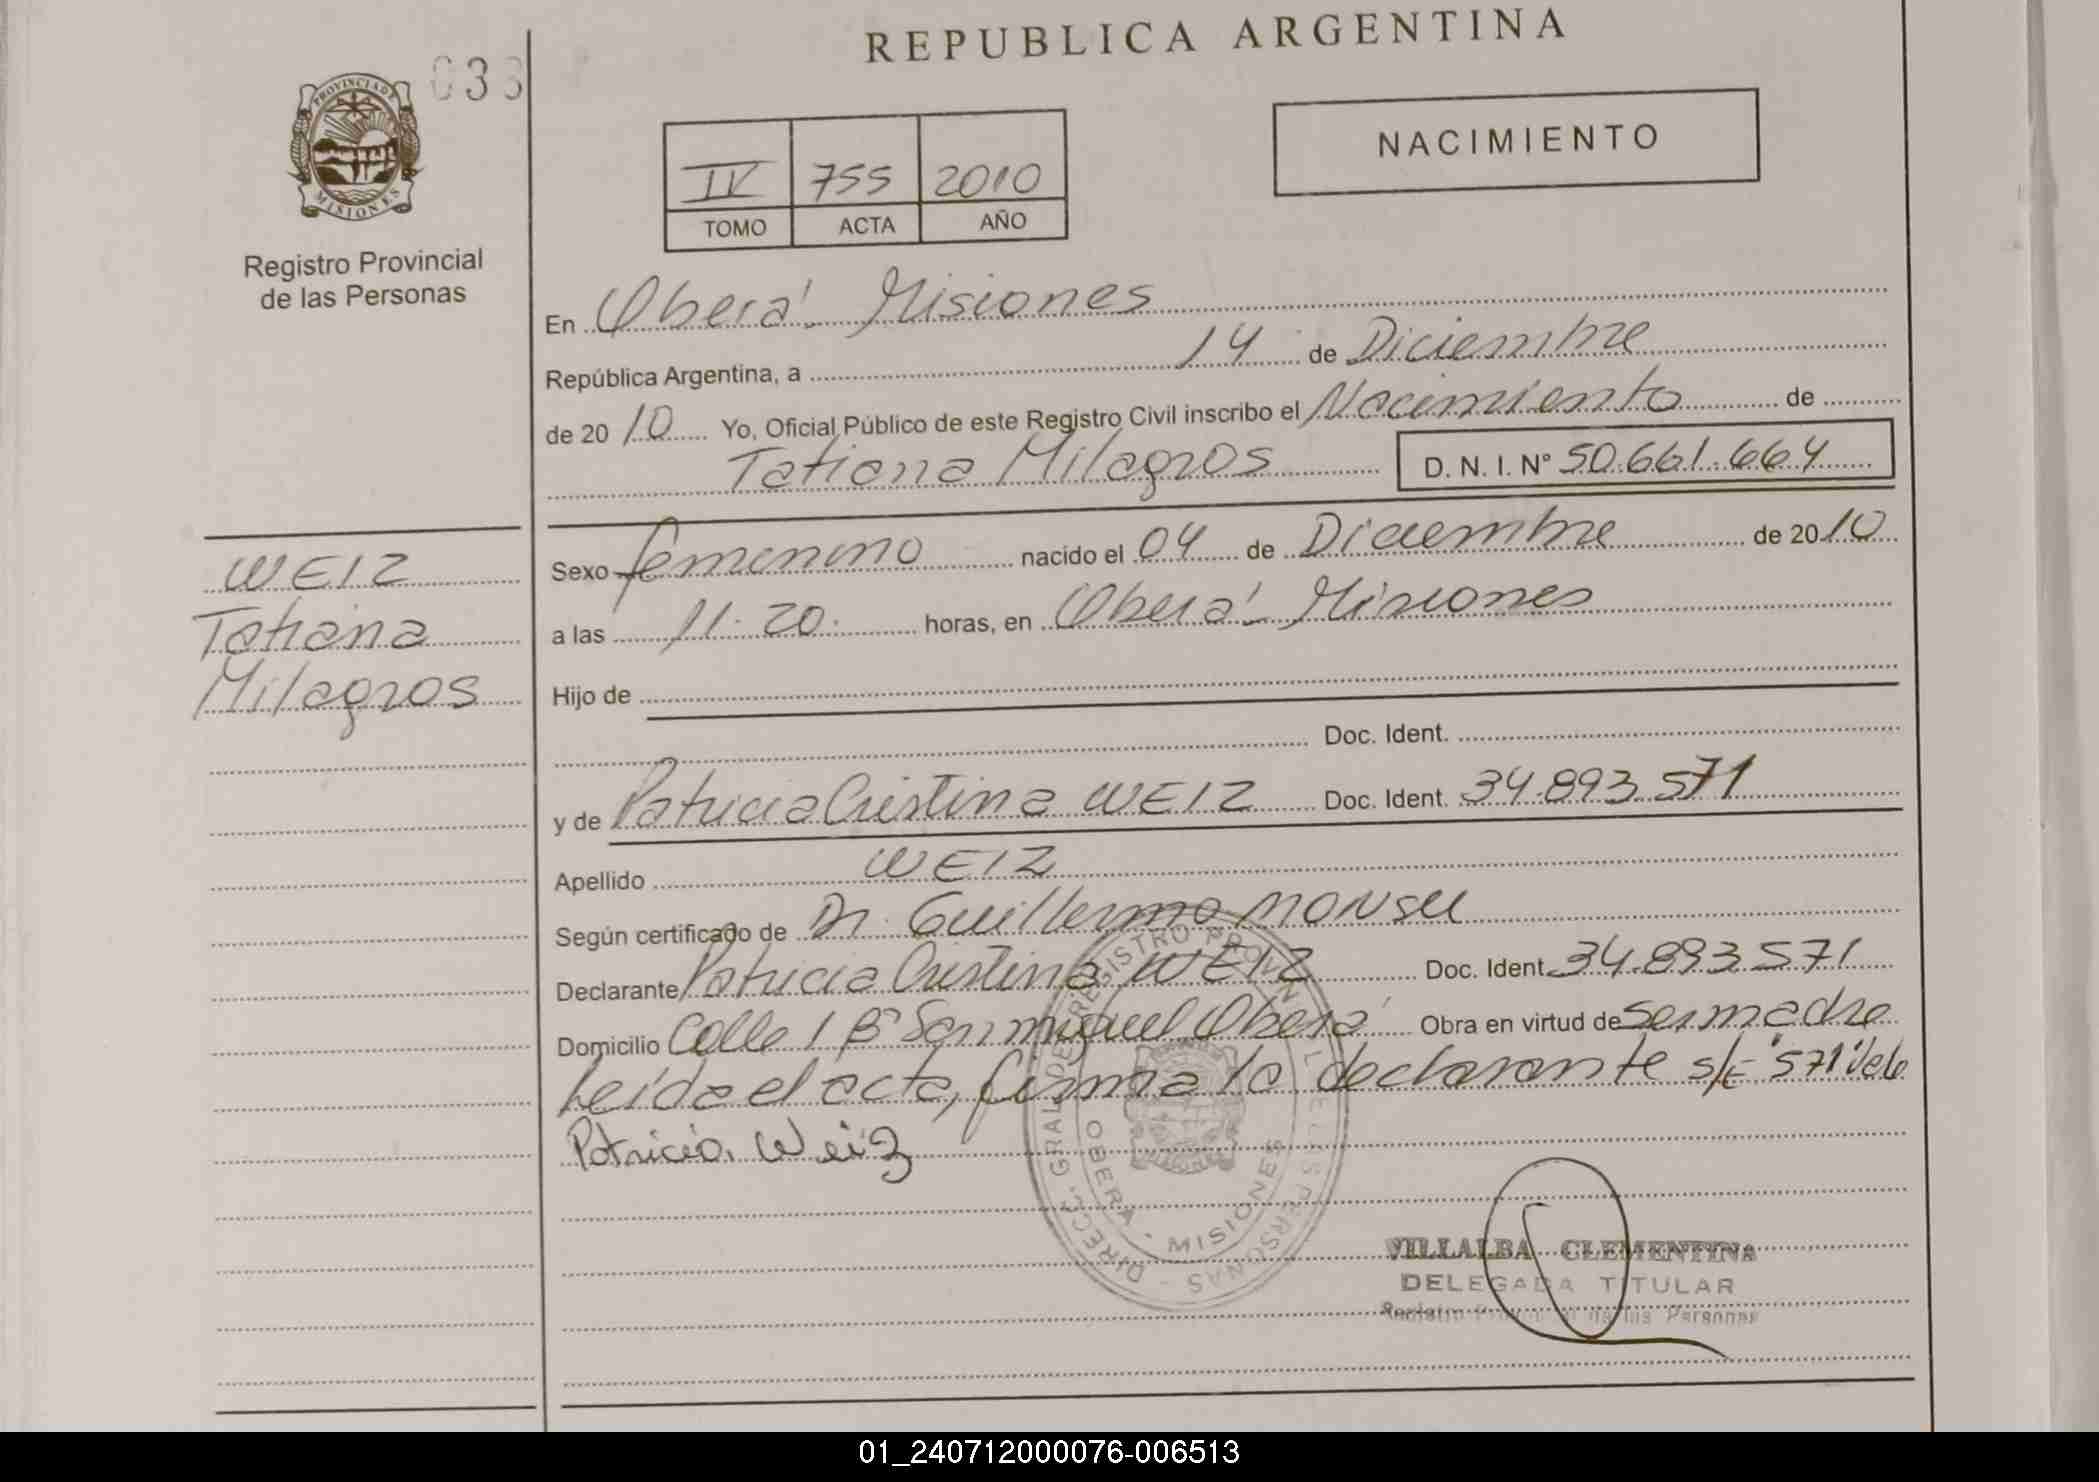 REPUBLICA ARGENTINA
033
PROVINCIA DE MISIONES
Registro Provincial
de las Personas
NACIMIENTO
IV 755 2010
TOMO ACTA AÑO
En Oberá Misiones
República Argentina, a 14 de Diciembre
de 2010 Yo, Oficial Público de este Registro Civil inscribo el Nacimiento de
Tatiana Milagros D. N. I. Nº 50.661.664
WEIZ
Tatiana
Milagros
Sexo femenino nacido el 04 de Diciembre de 2010
a las 11.20. horas, en Oberá Misiones
Hijo de
Doc. Ident.
y de Patricia Cristina WEIZ Doc. Ident. 34.893.571
Apellido WEIZ
Según certificado de Dr. Guillermo MONSU
Declarante Patricia Cristina WEIZ Doc. Ident. 34.893.571
Domicilio Calle 1 Bº San miguel Oberá Obra en virtud de ser madre
Leída el acta, firma la declarante s/E "571" Vale
Patricia Weiz
DIRECC. GRAL. DEL REGISTRO PROVINCIAL DE LAS PERSONAS
OBERA - MISIONES
VILLALBA CLEMENTINA
DELEGADA TITULAR
Registro Provincial de las Personas
01_240712000076-006513